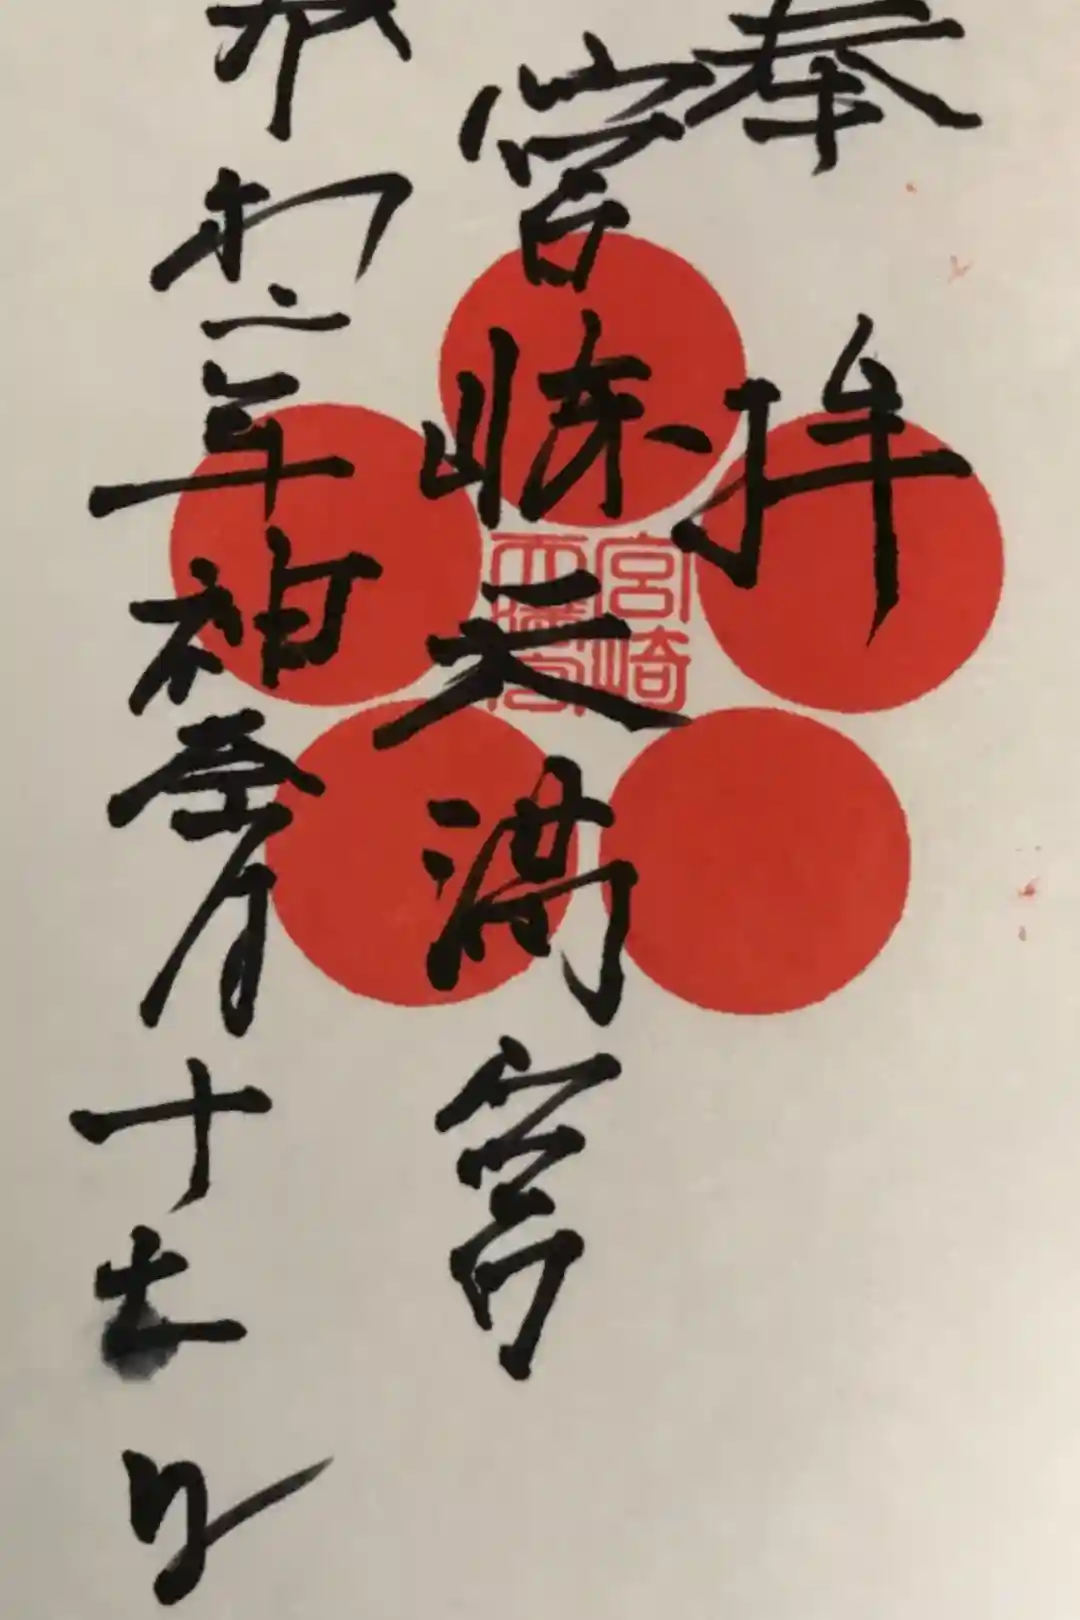 奉拝
宮崎天満宮
令和二年神無月十七日
宮崎
天満宮